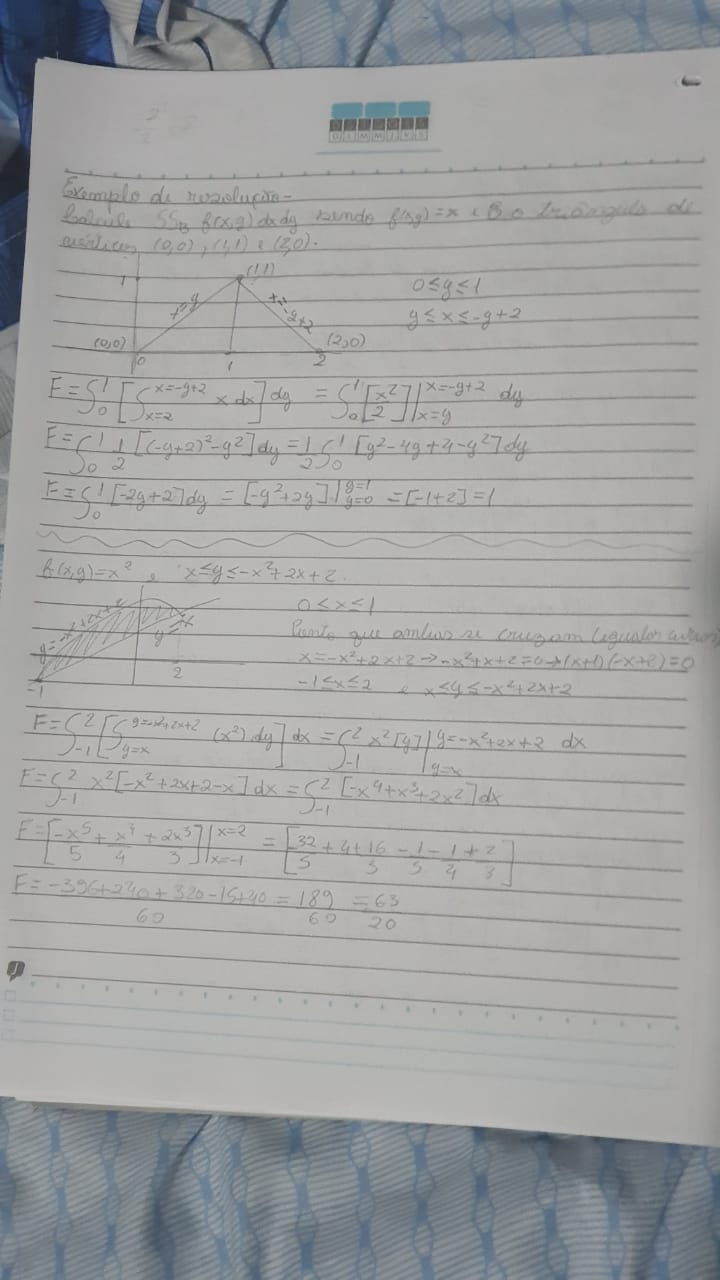 Exemplo de resolução-
Calcule SS_B f(x,y) dxdy sendo f(x,y)=x e B o triângulo de
vértices (0,0), (1,1) e (2,0).
1 (1,1)
x=y x=-y+2
(0,0) (2,0)
0 1 2
0≤y≤1
y≤x≤-y+2
F=∫₀¹ [∫_{x=2}^{x=-y+2} x dx] dy = ∫₀¹ [x²/2] |_{x=y}^{x=-y+2} dy
F=∫₀¹ 1/2 [(-y+2)²-y²] dy = 1/2 ∫₀¹ [y²-4y+4-y²] dy
F=∫₀¹ [-2y+2] dy = [-y²+2y] |_{y=0}^{y=1} = [-1+2] = 1
f(x,y)=x² e x≤y≤-x²+2x+2.
y=-x²+2x+2
y=x
-1 2
0≤x≤1
Ponto que ambas se cruzam (igualar
x=-x²+2x+2→-x²+x+2=0→(x+1)(-x+2)=0
-1≤x≤2 e x≤y≤-x²+2x+2
F=∫₋₁² [∫_{y=x}^{y=-x²+2x+2} (x²) dy] dx = ∫₋₁² x² [y] |_{y=x}^{y=-x²+2x+2} dx
F=∫₋₁² x² [-x²+2x+2-x] dx = ∫₋₁² [-x⁴+x³+2x²] dx
F=[-x⁵/5 + x⁴/4 + 2x³/3] |_{x=-1}^{x=2} = [32/5 + 4 + 16/3 - 1/5 - 1/4 + 2/3]
F= -396+240+320-15+40/60 = 189/60 = 63/20